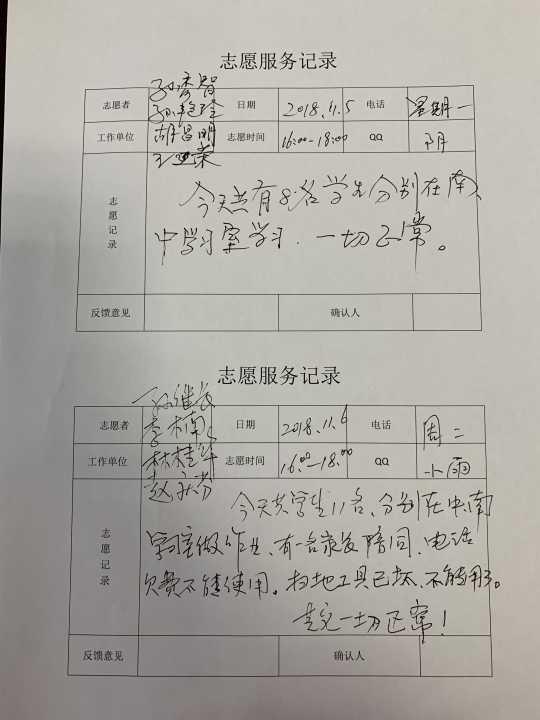 志愿服务记录
志愿者 日期 2018.11.5 电话 星期一
工作单位 胡昌明 志愿时间 16:00-18:00 QQ 阴
志愿记录
今天共有8名学生分别在南、
中学习室学习.一切正常。
反馈意见 确认人
志愿服务记录
志愿者 李楠 日期 2018.11.6 电话 周二
工作单位 林桂华 志愿时间 16:00-18:00 QQ 小雨
志愿记录
今天共学生11名、分别在中、南
学习室做作业、有一名家长陪同、电话
欠费不能使用。扫地工具已坏、不能用了。
一切正常!
反馈意见 确认人